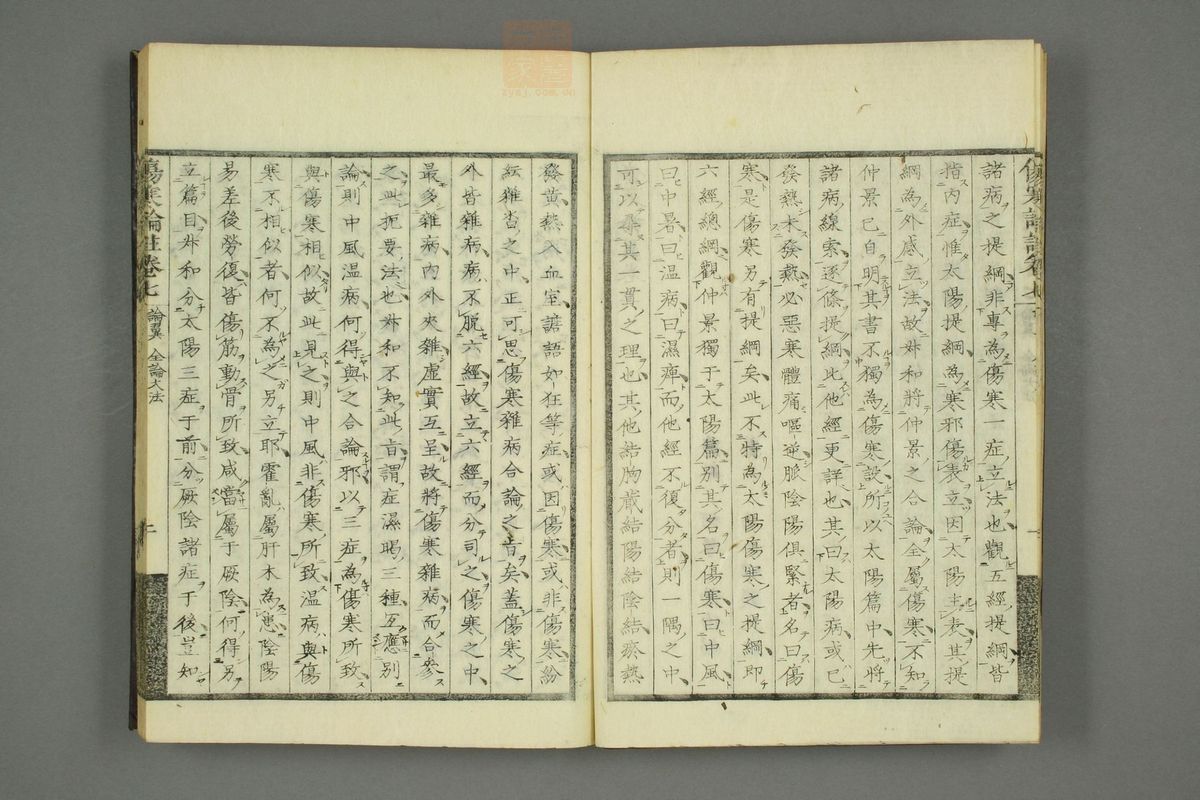 諸病之提綱非專為傷寒一症立法也觀五經提綱皆
指内症惟太陽提綱為寒邪傷表立因太陽主表其提
綱為外感立法故叔和將仲景之合論全屬傷寒不知
仲景已自明其書不獨為傷寒設所以太陽篇中先將
諸病線索逐條提綱此他經更詳也其曰太陽病或已
發熱未發熱必惡寒體痛嘔逆脈陰陽俱緊者名曰傷
寒是傷寒另有提綱矣此不特為太陽傷寒之提綱即
六經總綱觀仲景獨于太陽篇別其名曰傷寒曰中風
曰中暑曰温病曰濕痺而他經不復分者則一隅之中
可以尋其一貫之理也其他結胸藏結陽結陰結瘀熱
發黃熱入血室譫語如狂等症或因傷寒或非傷寒紛
紜雜沓之中正可思傷寒雜病合論之旨矣蓋傷寒之
外皆雜病病不脱六經故立六經而分司之傷寒之中
最多雜病内外夾雜虛實互呈故將傷寒雜病而合參
之此扼要法也叔和不知此旨謂痙濕暍三種互應別
論則中風温病何得與之合論邪以三症為傷寒所致
與傷寒相似故此見之則中風非傷寒所致温病與傷
寒不相似者何不為之另立耶霍亂屬肝木為患陰陽
易差後勞復皆傷筋動骨所致咸當屬于厥陰何得另
立篇目叔和分太陽三症于前分厥陰諸症于後豈知
傷寒論註卷七 論翼 全論大法